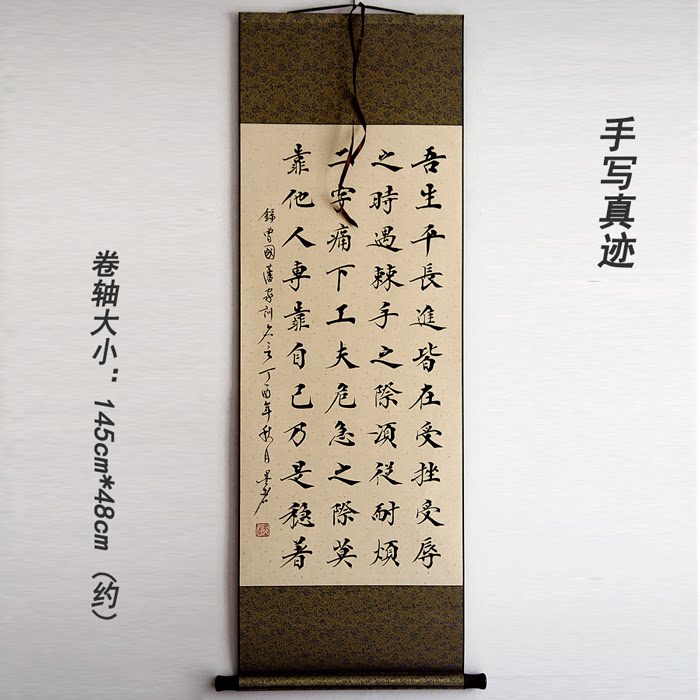 手写真迹
吾生平長進皆在受挫受辱
之時遇棘手之際須從耐煩
二字痛下工夫危急之際莫
靠他人專靠自己乃是穩著
錄曾國藩家訓名言丁酉年秋月
卷轴大小：145cm*48cm（约）